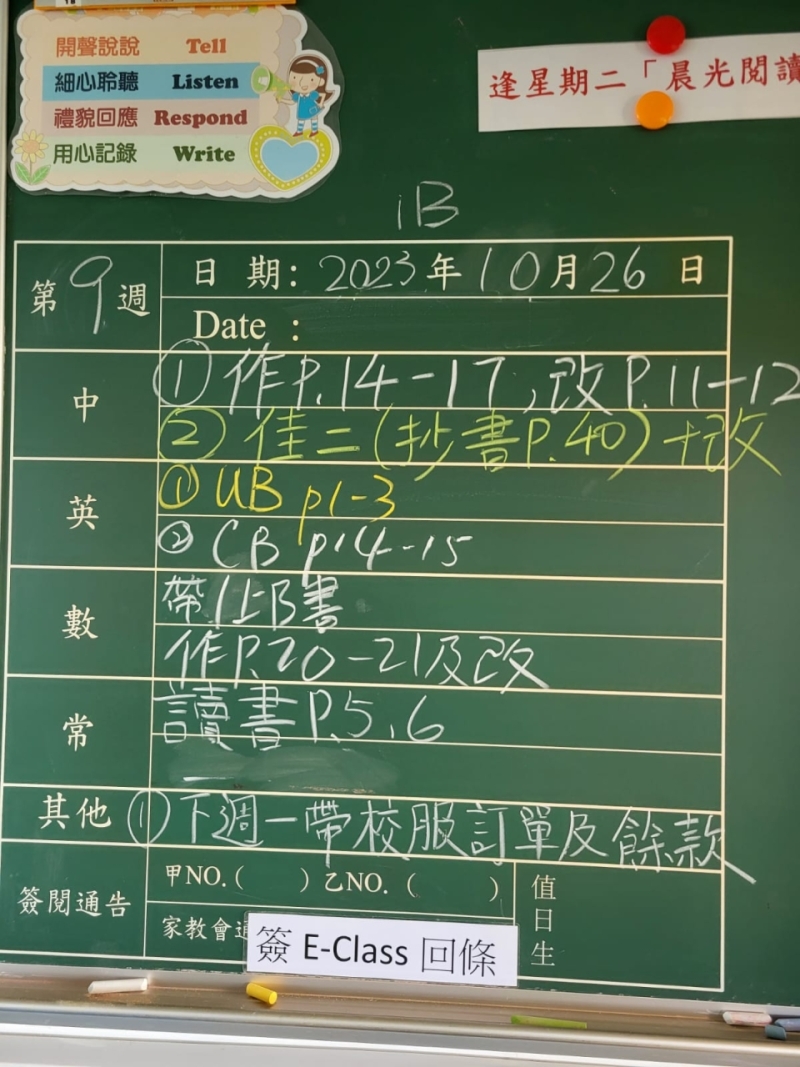 開聲說說 Tell
細心聆聽 Listen
禮貌回應 Respond
用心記錄 Write
逢星期二「晨光閱讀
1B
第9週
日期：2023年10月26日
Date :
中
①作P.14-17，改P.11-12
②佳二(抄書P.40)+改
英
①UB p1-3
②CB p14-15
數
帶1上B書
作P.20-21及改
常
讀書P.5,6
其他
①下週一帶校服訂單及餘款
簽閱通告
甲NO.( ) 乙NO.( )
值日生
家教會通
簽 E-Class 回條